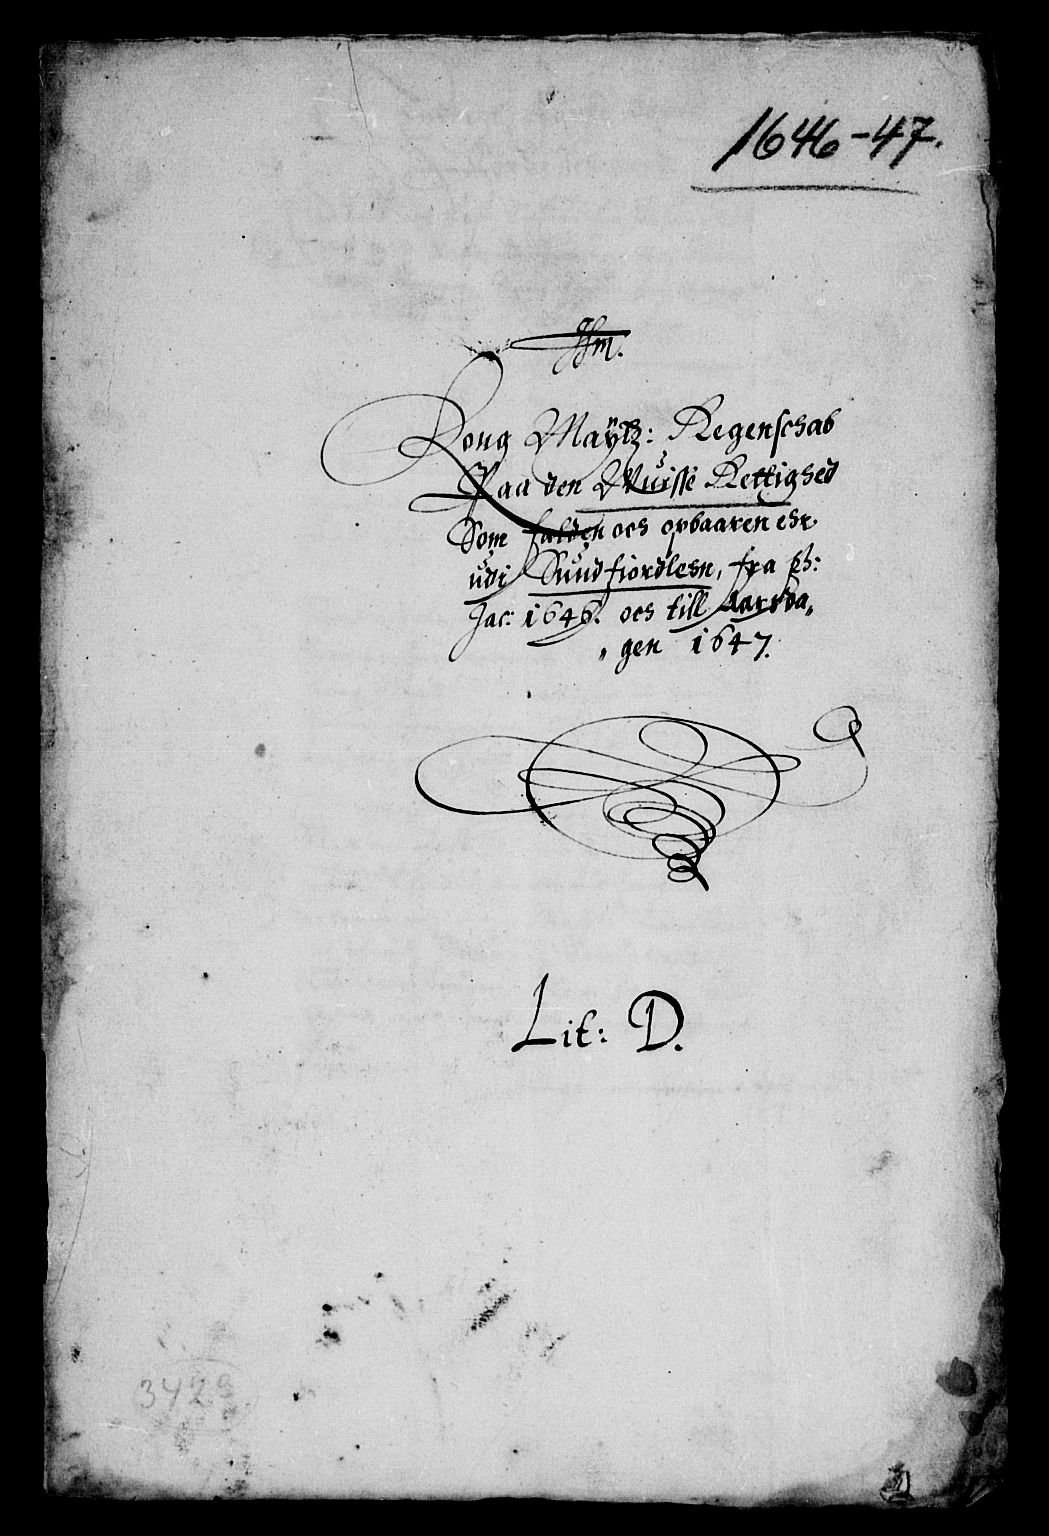 1646-47.
Kong Maÿtz: Regenschab
Paa den Wuisse Rettighed
Som falden och opbaaren ehr
udi Sundfiordlehn, fra Ph:
Jac: 1646. och till Aarsda„
„gen 1647.
Lit: D.
3429